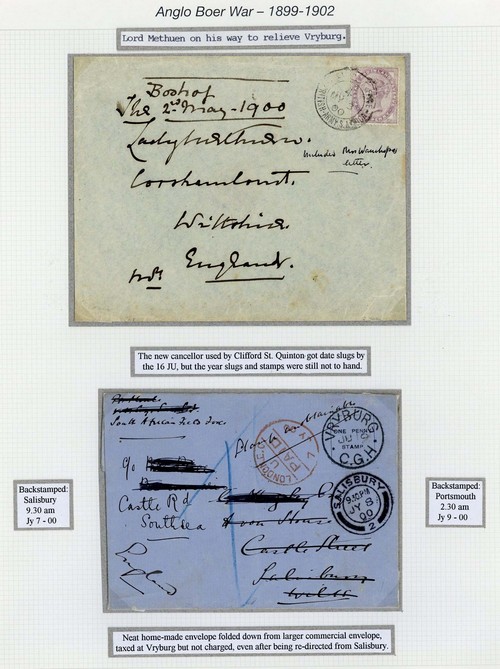 Anglo Boer War – 1899-1902
Lord Methuen on his way to relieve Vryburg.
Boshof
The 2nd May-1900
Lady Methuen.
Corsham Court.
Wiltshire
England.
Includes Mrs
letter.
The new cancellor used by Clifford St. Quinton got date slugs by
the 16 JU, but the year slugs and stamps were still not to hand.
South African Field Force
c/o
Castle Rd
Southsea
England
Castle Street
Salisbury
Wilts
LONDON
PAID
VRYBURG
ONE PENNY
STAMP
C.G.H
SALISBURY
9.30 PM
JY 8
00
2
Backstamped:
Salisbury
9.30 am
Jy 7 - 00
Backstamped:
Portsmouth
2.30 am
Jy 9 - 00
Neat home-made envelope folded down from larger commercial envelope,
taxed at Vryburg but not charged, even after being re-directed from Salisbury.